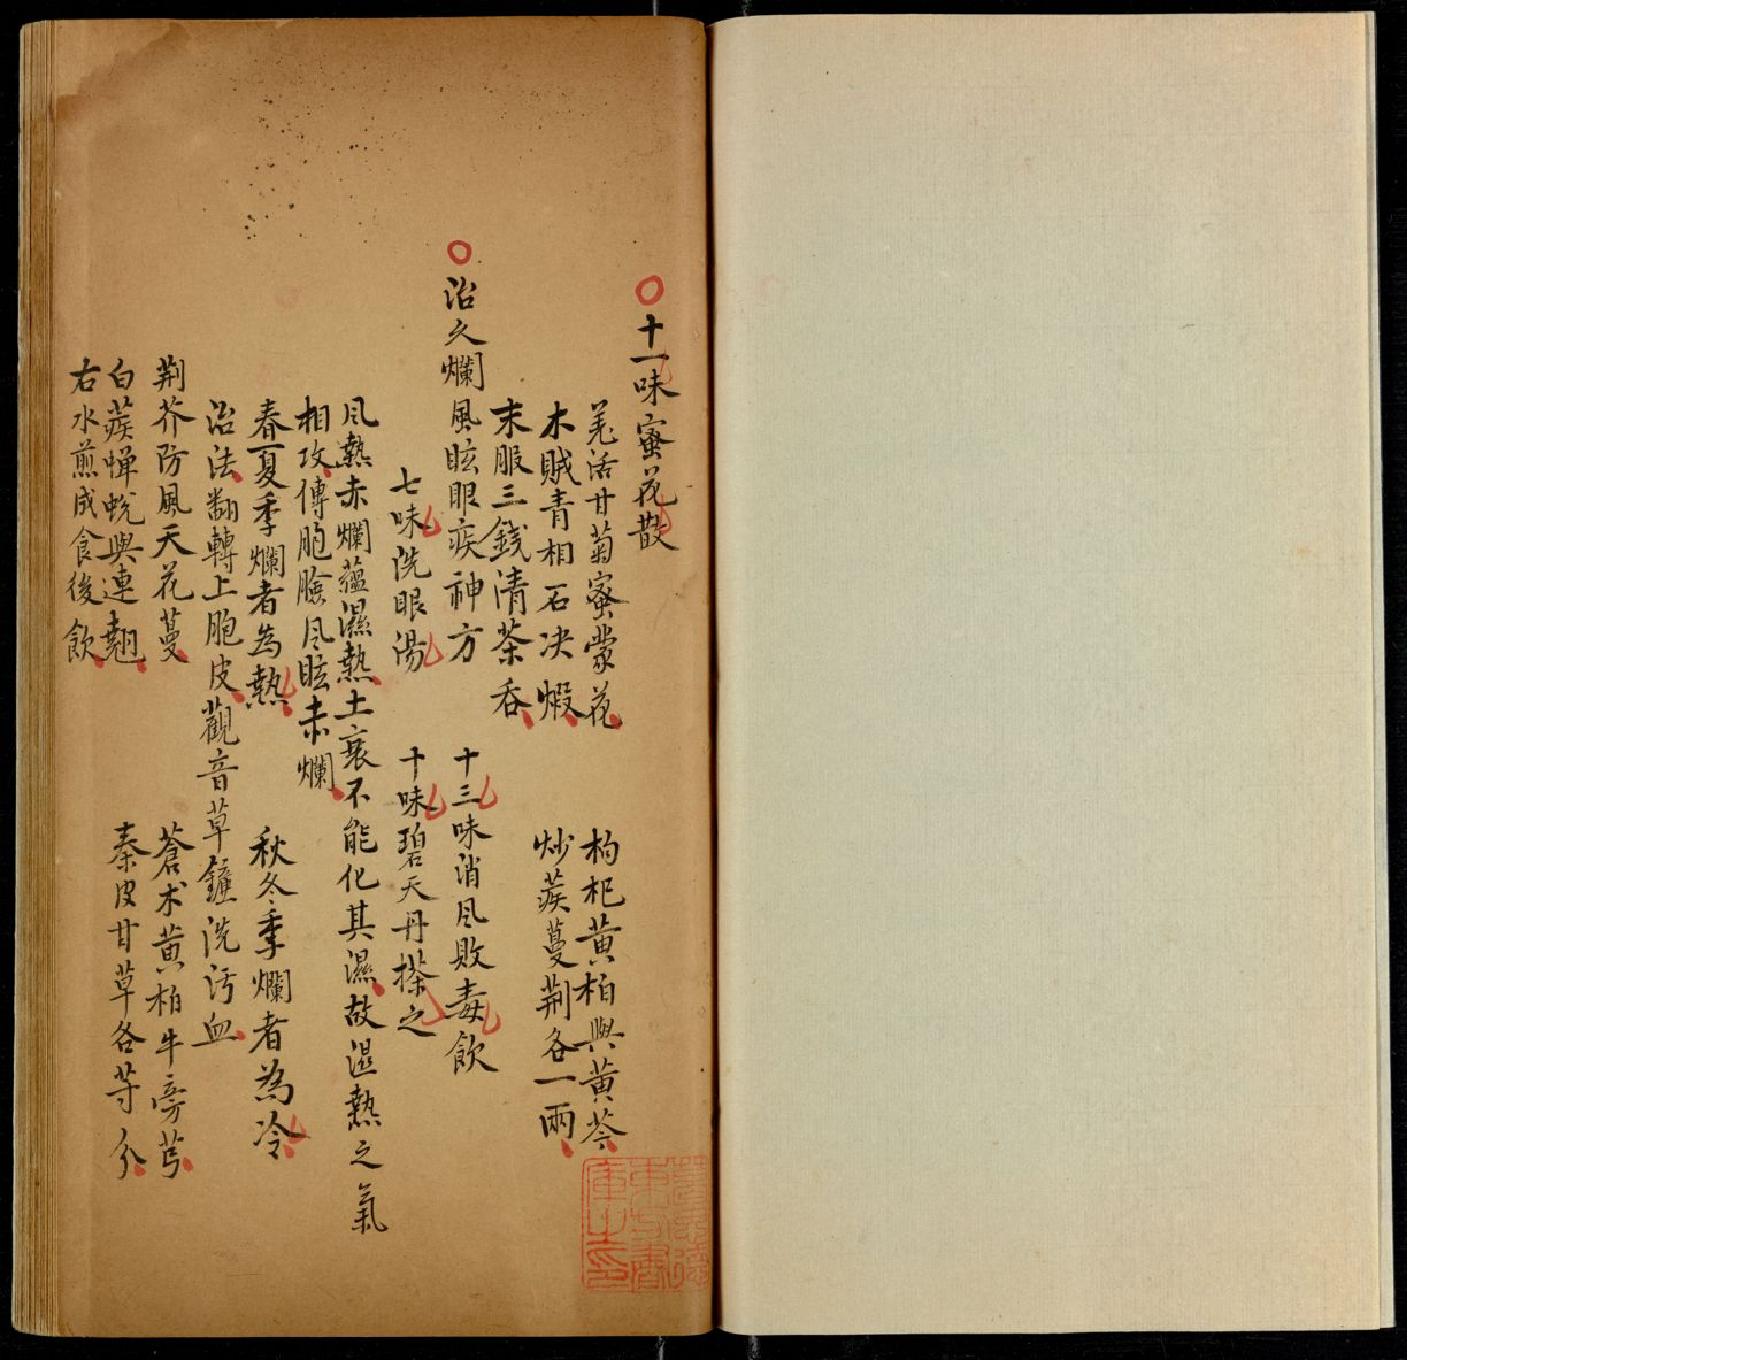 十一味蜜花散
羌活甘菊蜜蒙花　枸杞黄柏與黄芩
木賊青相石决煆　炒蒺蔓荆各一兩
末服三錢清茶吞
治久爛風眩眼疾神方　十三味消风敗毒飲
七味洗眼湯　十味碧天丹搽之
风熱赤爛蘊濕熱土衰不能化其濕故湿熱之氣
相攻傳胞臉风眩赤爛
春夏季爛者為熱　秋冬季爛者為冷
治法翻轉上胞皮觀音草鏟洗污血
荆芥防風天花蔓　蒼术黄柏牛旁芎
白蒺蟬蛻與連翹　秦皮甘草各等分
右水煎成食後飲